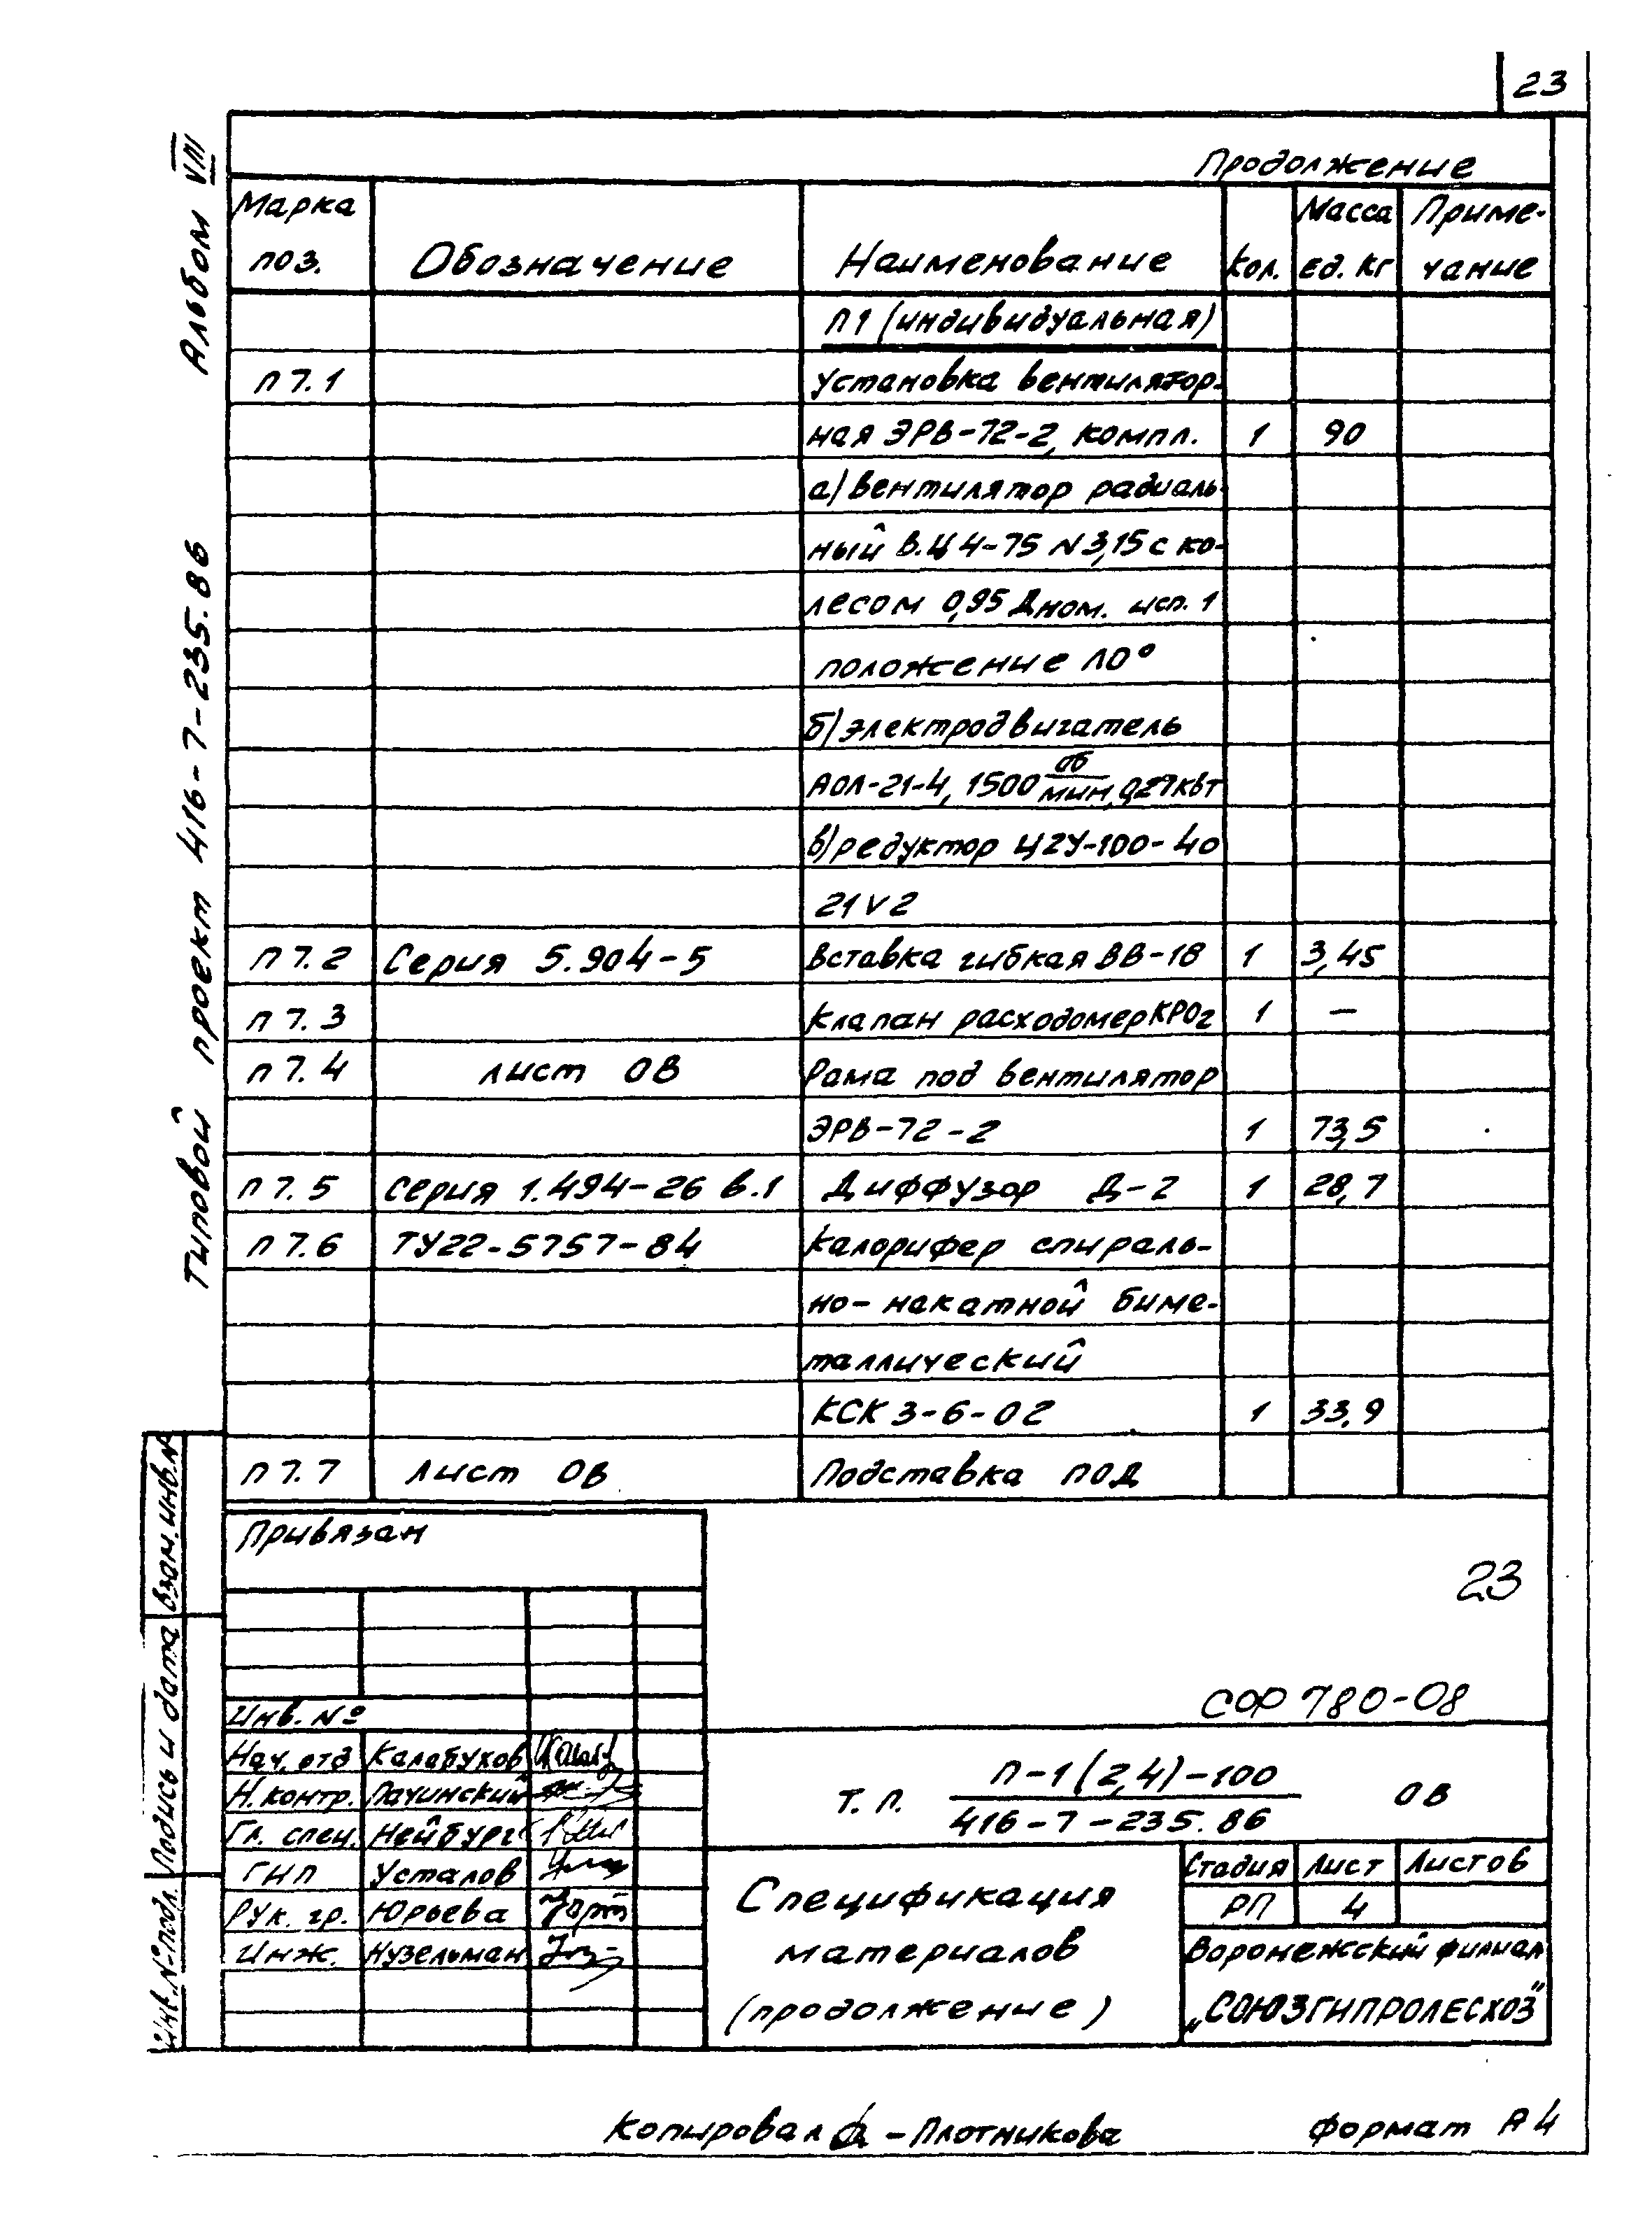 23
Альбом VIII
Типовой проект 416-7-235.86
Продолжение
Марка поз. Обозначение Наименование Кол. Масса ед. кг Приме-чание
П1 (индивидуальная)
П7.1 Установка вентилятор-
ная ЭРВ-72-2, компл. 1 90
а) вентилятор радиаль-
ный В.Ц4-75 N3,15 с ко-
лесом 0,95 Дном. исп. 1
положение Л0°
б) электродвигатель
АОЛ-21-4, 1500 об/мин, 0,27 квт
в) редуктор Ц2У-100-40
21V2
П7.2 Серия 5.904-5 Вставка гибкая ВВ-18 1 3,45
П7.3 Клапан расходомер КРОг 1 —
П7.4 лист ОВ Рама под вентилятор
ЭРВ-72-2 1 73,5
П7.5 Серия 1.494-26 в.1 Диффузор Д-2 1 28,7
П7.6 ТУ22-5757-84 Калорифер спираль-
но-накатной биме-
таллический
КСК 3-6-02 1 33,9
П7.7 Лист ОВ Подставка под
Привязан
23
СФ 780-08
Инв. №
Нач. отд Калабухов
Н. контр. Пачинский
Гл. спец. Нейбург
ГИП Усталов
Рук. гр. Юрьева
Инж. Нузельман
Т.П. П-1(2,4)-100 ОВ
416-7-235.86
Спецификация
материалов
(продолжение)
Стадия Лист Листов
РП 4
Воронежский филиал
„СОЮЗГИПРОЛЕСХОЗ"
Взам. инв. №
Подпись и дата
Инв. № подл.
Копировал - Плотникова
Формат А4